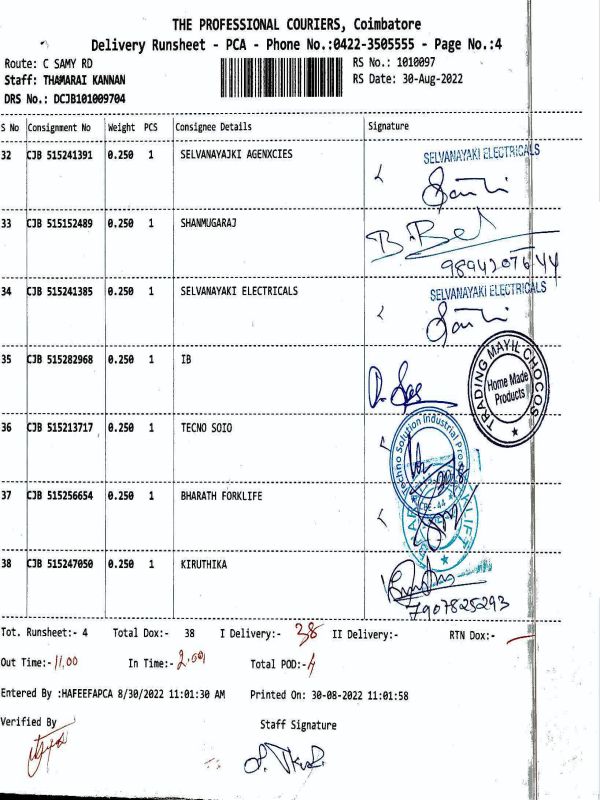 THE PROFESSIONAL COURIERS, Coimbatore
Delivery Runsheet - PCA - Phone No.:0422-3505555 - Page No.:4
Route: C SAMY RD
RS No.: 1010097
Staff: THAMARAI KANNAN
RS Date: 30-Aug-2022
DRS No.: DCJB101009704
S No Consignment No Weight PCS Consignee Details Signature
32 CJB 515241391 0.250 1 SELVANAYAJKI AGENXCIES
SELVANAYAKI ELECTRICALS
33 CJB 515152489 0.250 1 SHANMUGARAJ
9894207644
34 CJB 515241385 0.250 1 SELVANAYAKI ELECTRICALS
SELVANAYAKI ELECTRICALS
35 CJB 515282968 0.250 1 IB
TRADING MAYIL CHOCOS
Home Made
Products
36 CJB 515213717 0.250 1 TECNO SOIO
Techno Solution Industrial
37 CJB 515256654 0.250 1 BHARATH FORKLIFE
38 CJB 515247050 0.250 1 KIRUTHIKA
7907825293
Tot. Runsheet:- 4 Total Dox:- 38 I Delivery:- 38 II Delivery:- RTN Dox:-
Out Time:- 11.00 In Time:- 2.00 Total POD:- 4
Entered By :HAFEEFAPCA 8/30/2022 11:01:30 AM Printed On: 30-08-2022 11:01:58
Verified By
Staff Signature